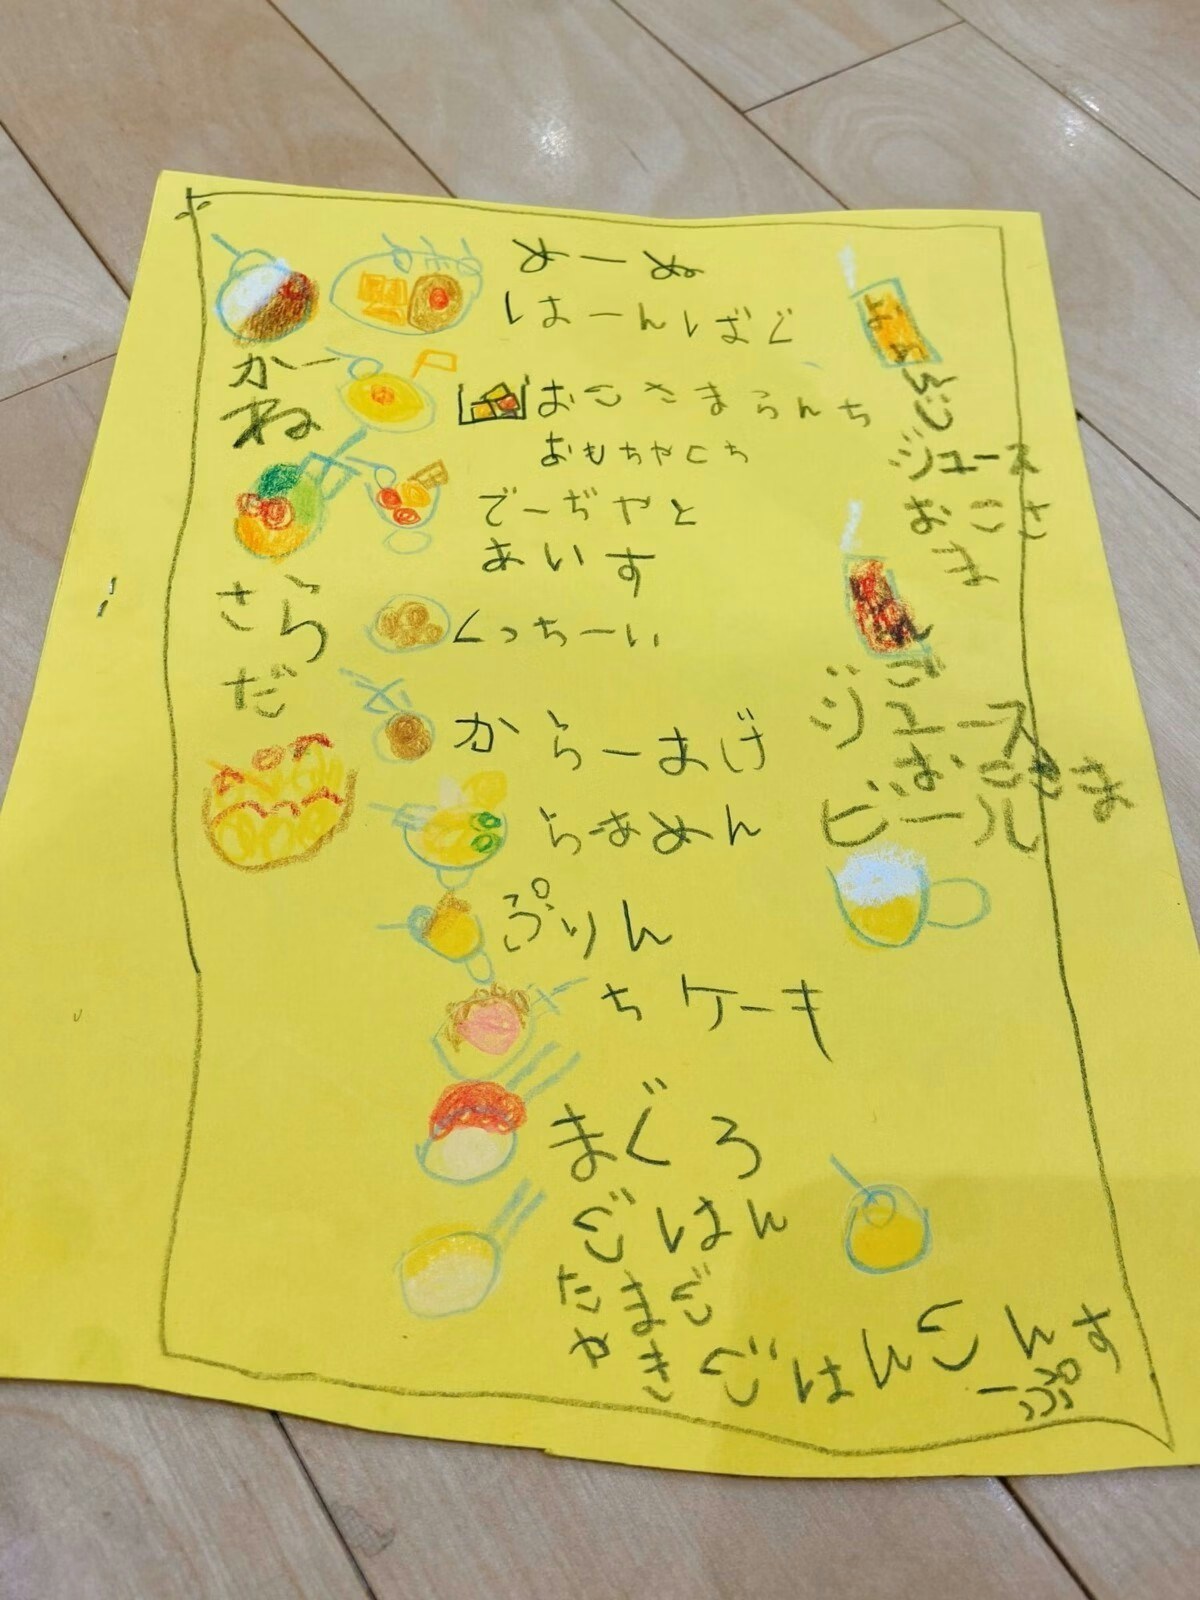 めーぬ
はーんばぐ
かー
ね
おこさまらんち
おもちゃにち
でーぢやと
あいす
さら
だ
くっちーい
からーあげ
らーあめん
ぷりん
ちケーキ
まぐろ
ごはん
たまご
やきごはん
こんすーぷ
ジュース
おこさ
ま
んご
ジュース
おこさま
ビール